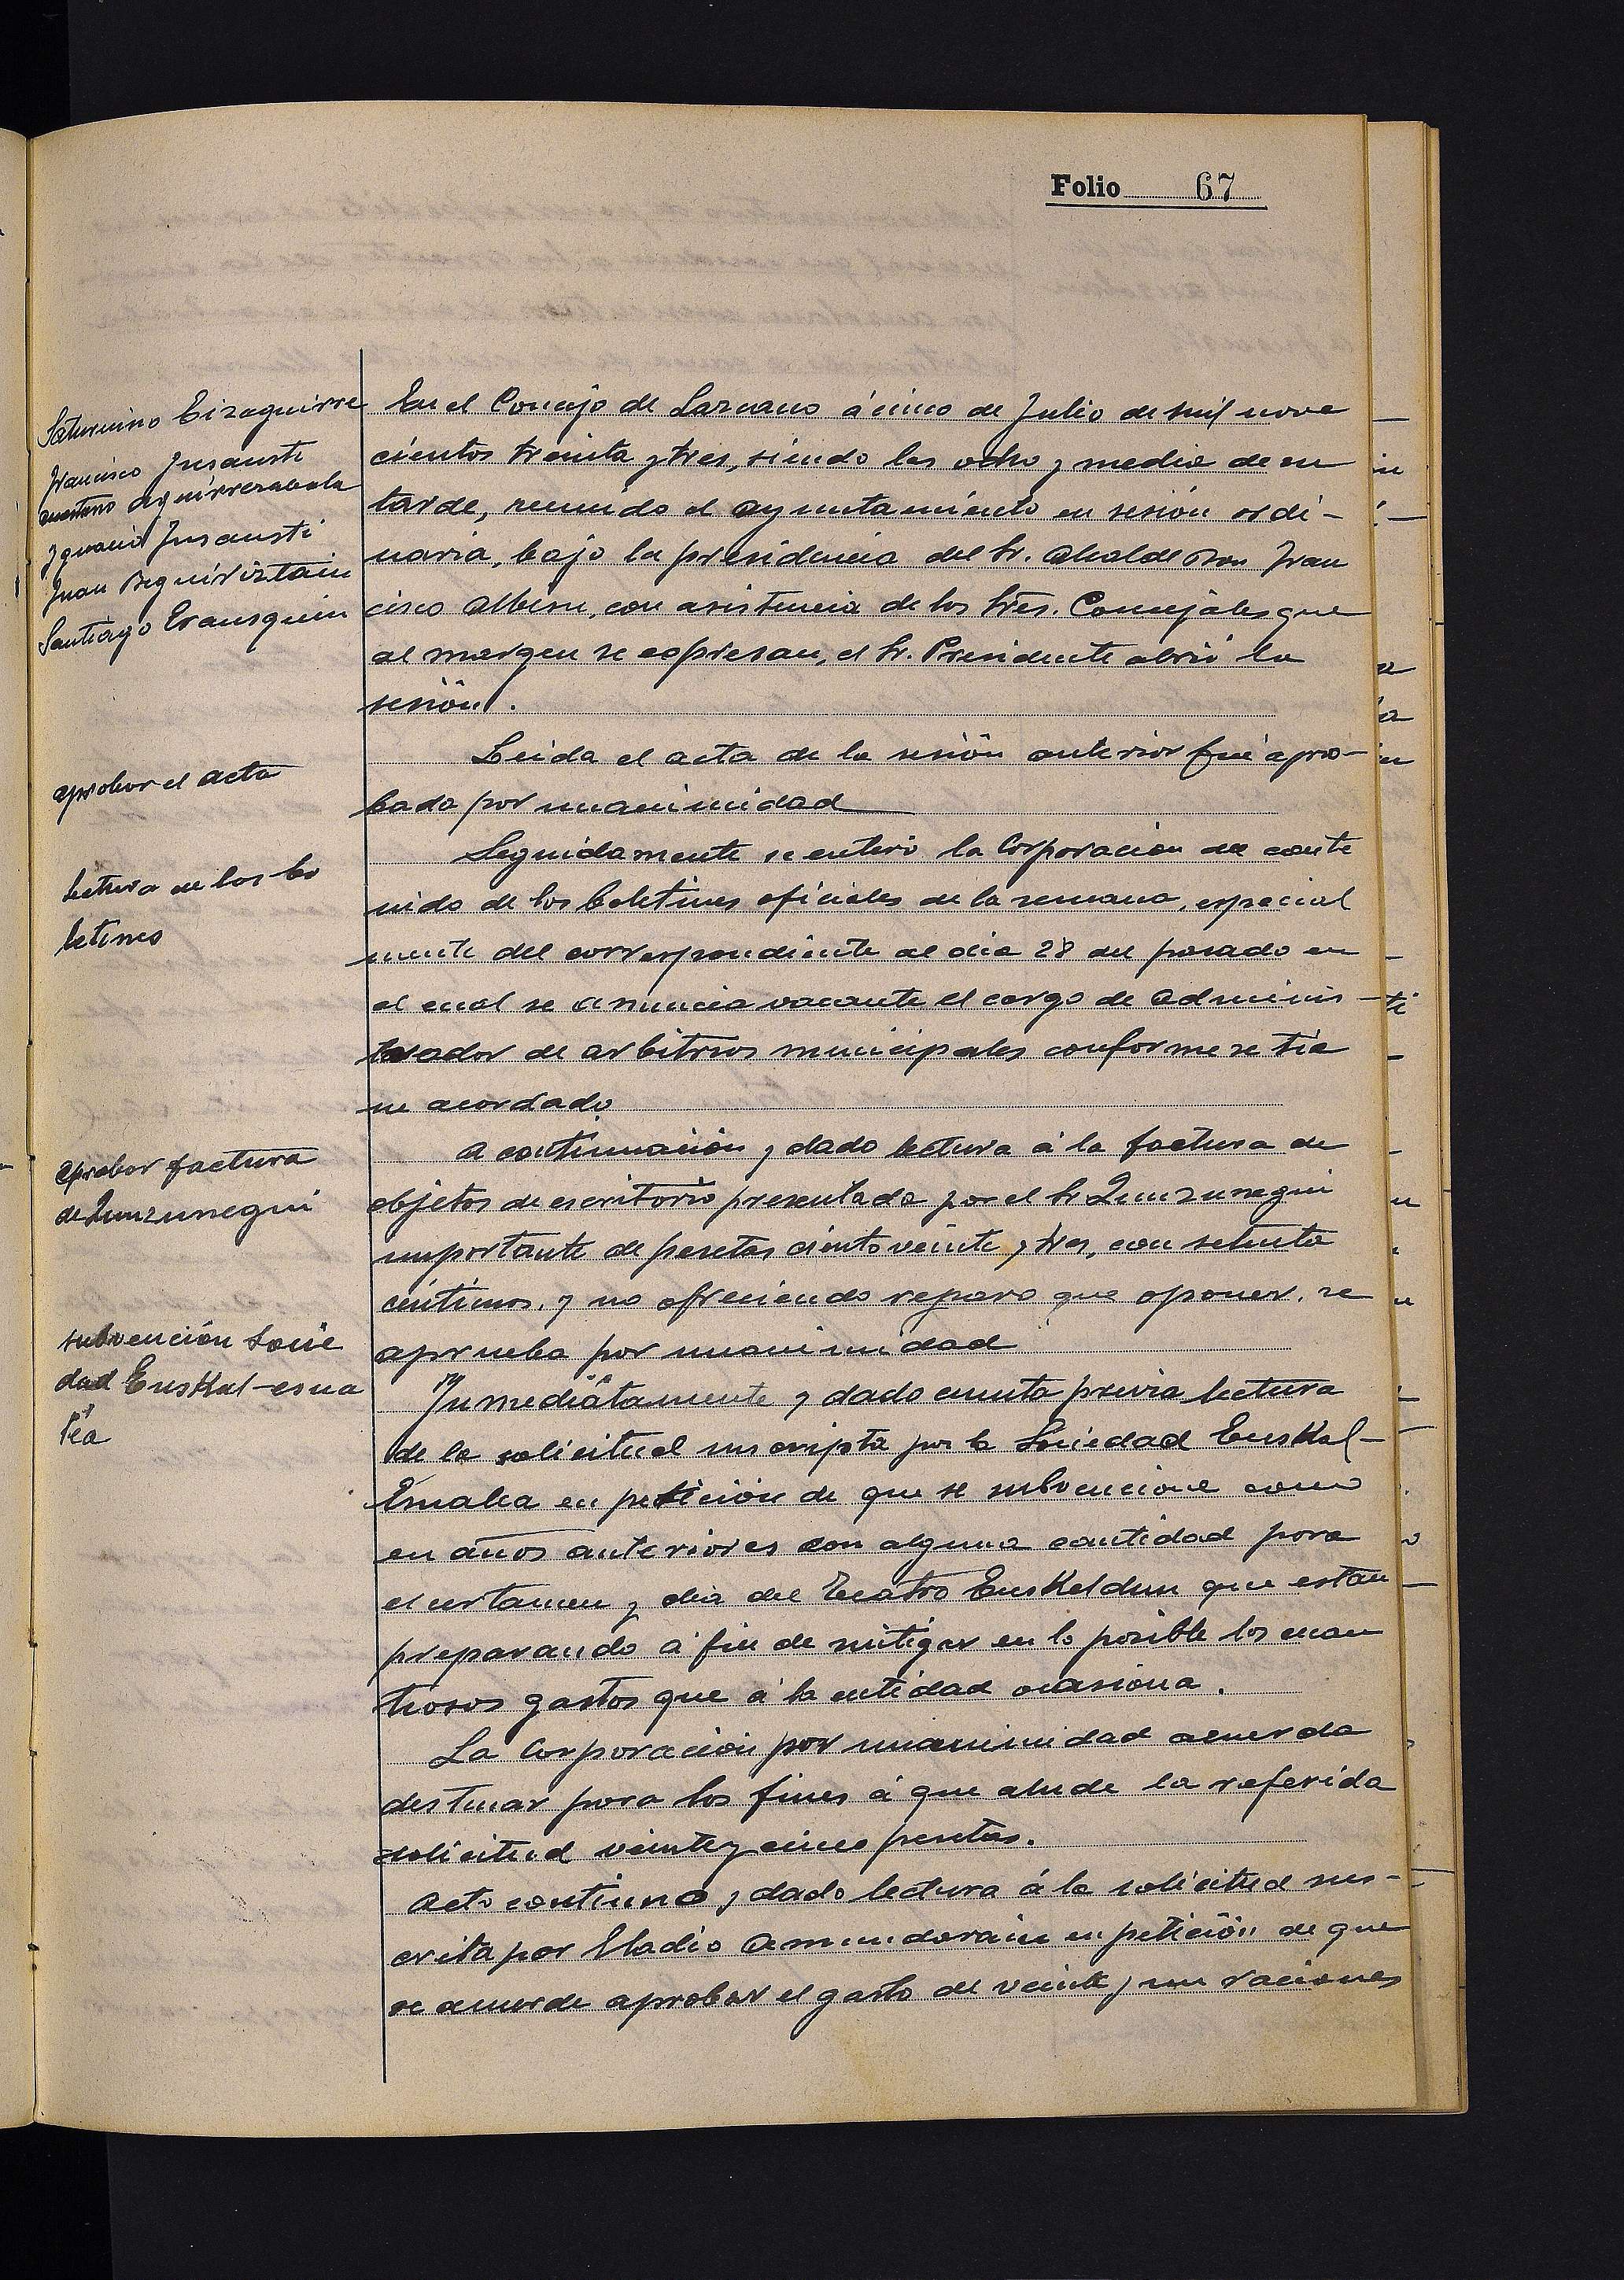 Folio 67
Saturnino Eizaguirre
Francisco Insausti
Aguirrezabala
Ignacio Insausti
Juan Beguiristain
Santiago Erausquin
En el Concejo de Lazcano á cinco de Julio de mil nove
cientos treinta y tres, siendo las ocho y media de su
tarde, reunido el Ayuntamiento en sesión ordi-
naria, bajo la presidencia del Sr. Alcalde Don Fran
cisco Albisu, con asistencia de los Sres. Concejales que
al margen se expresan, el Sr. Presidente abrió la
sesión.
aprobar el acta
Leida el acta de la sesión anterior fué apro-
bada por unanimidad
Lectura de los bo
letines
Seguidamente se enteró la Corporación del conte
nido de los boletines oficiales de la semana, especial
mente del correspondiente al dia 28 del pasado en
el cual se anuncia vacante el cargo de Adminis-
trador de arbitrios municipales conforme se tie
ne acordado
aprobar factura
de Zunzunegui
A continuación y dado lectura á la factura de
objetos de escritorio presentada por el Sr Zunzunegui
importante de pesetas ciento veinte y tres, con setenta
céntimos, y no ofreciendo reparo que oponer, se
aprueba por unanimidad
subvención Socie
dad Euskal-esna
lea
Inmediatamente y dado cuenta previa lectura
de la solicitud suscripta por la Sociedad Euskal-
Esnalea en petición de que se subvencione como
en años anteriores con alguna cantidad para
el certamen y dia del Teatro Euskeldun que estan
preparando á fin de mitigar en lo posible los cuan
tiosos gastos que á la entidad ocasiona.
La Corporación por unanimidad acuerda
destinar para los fines á que alude la referida
solicitud veinte y cinco pesetas.
Acto continuo y dado lectura á la solicitud sus-
crita por Eladio Amundarain en petición de que
se acuerde aprobar el gasto de veinte y un raciones